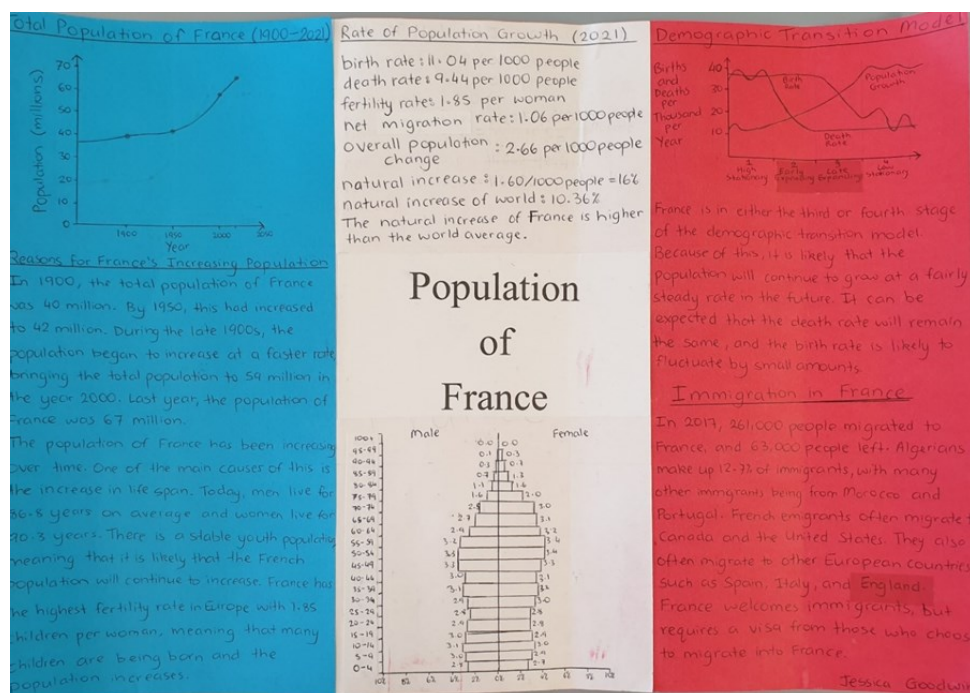 Total Population of France (1900-2021)
Population (millions)
70
60
50
40
30
20
10
0
1900
1950
2000
2050
Year
Reasons for France's Increasing Population
In 1900, the total population of France
was 40 million. By 1950, this had increased
to 42 million. During the late 1900s, the
population began to increase at a faster rate
bringing the total population to 59 million in
the year 2000. Last year, the population of
France was 67 million.
The population of France has been increasing
over time. One of the main causes of this is
the increase in life span. Today, men live for
86.8 years on average and women live for
90.3 years. There is a stable youth population
meaning that it is likely that the French
population will continue to increase. France has
the highest fertility rate in Europe with 1.85
children per woman, meaning that many
children are being born and the
population increases.
Rate of Population Growth (2021)
birth rate: 11.04 per 1000 people
death rate: 9.44 per 1000 people
fertility rate: 1.85 per woman
net migration rate: 1.06 per 1000 people
overall population : 2.66 per 1000 people
change
natural increase : 1.60/1000 people = 16%
natural increase of world : 10.36%
The natural increase of France is higher
than the world average.
Population
of
France
Male
Female
100+
95-99
90-94
85-89
75-79
70-74
65-69
60-64
55-59
50-54
45-49
35-39
30-34
25-29
20-24
15-19
10-14
5-9
0-4
0.0 0.0
0.1 0.3
0.3 0.7
1.6 2.0
Demographic Transition Model
Births
and
Deaths
per
Thousand
per
Year
40
30
20
10
Birth
Rate
Population
Growth
Death
Rate
1
High
Stationary
2
Early
Expanding
3
Late
Expanding
4
Low
Stationary
France is in either the third or fourth stage
of the demographic transition model.
Because of this, it is likely that the
population will continue to grow at a fairly
steady rate in the future. It can be
expected that the death rate will remain
the same, and the birth rate is likely to
fluctuate by small amounts.
Immigration in France
In 2017, 261,000 people migrated to
France, and 63,000 people left. Algerians
make up 12.7% of immigrants, with many
other immigrants being from Morocco and
Portugal. French emigrants often migrate
Canada and the United States. They also
often migrate to other European countries
such as Spain, Italy, and England.
France welcomes immigrants, but
requires a visa from those who choose
to migrate into France.
Jessica Goodwin